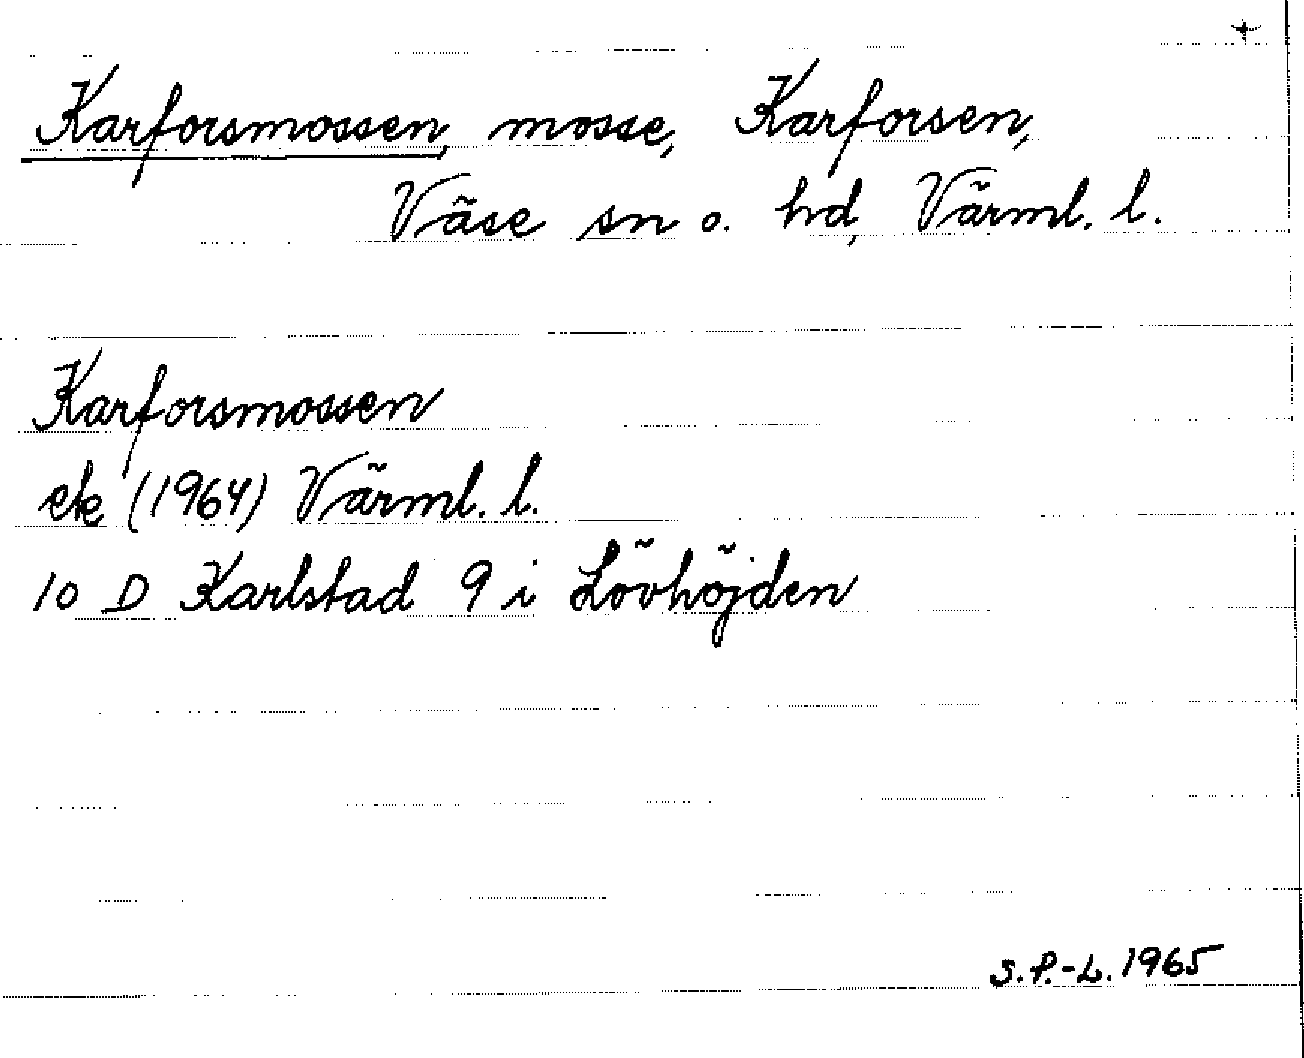 +
Karforsmossen, mosse, Karforsen,
Väse sn o. hd, Värml. l.
Karforsmossen
ek (1964) Värml. l.
10 D Karlstad 9 i Lövhöjden
S.P.-L. 1965